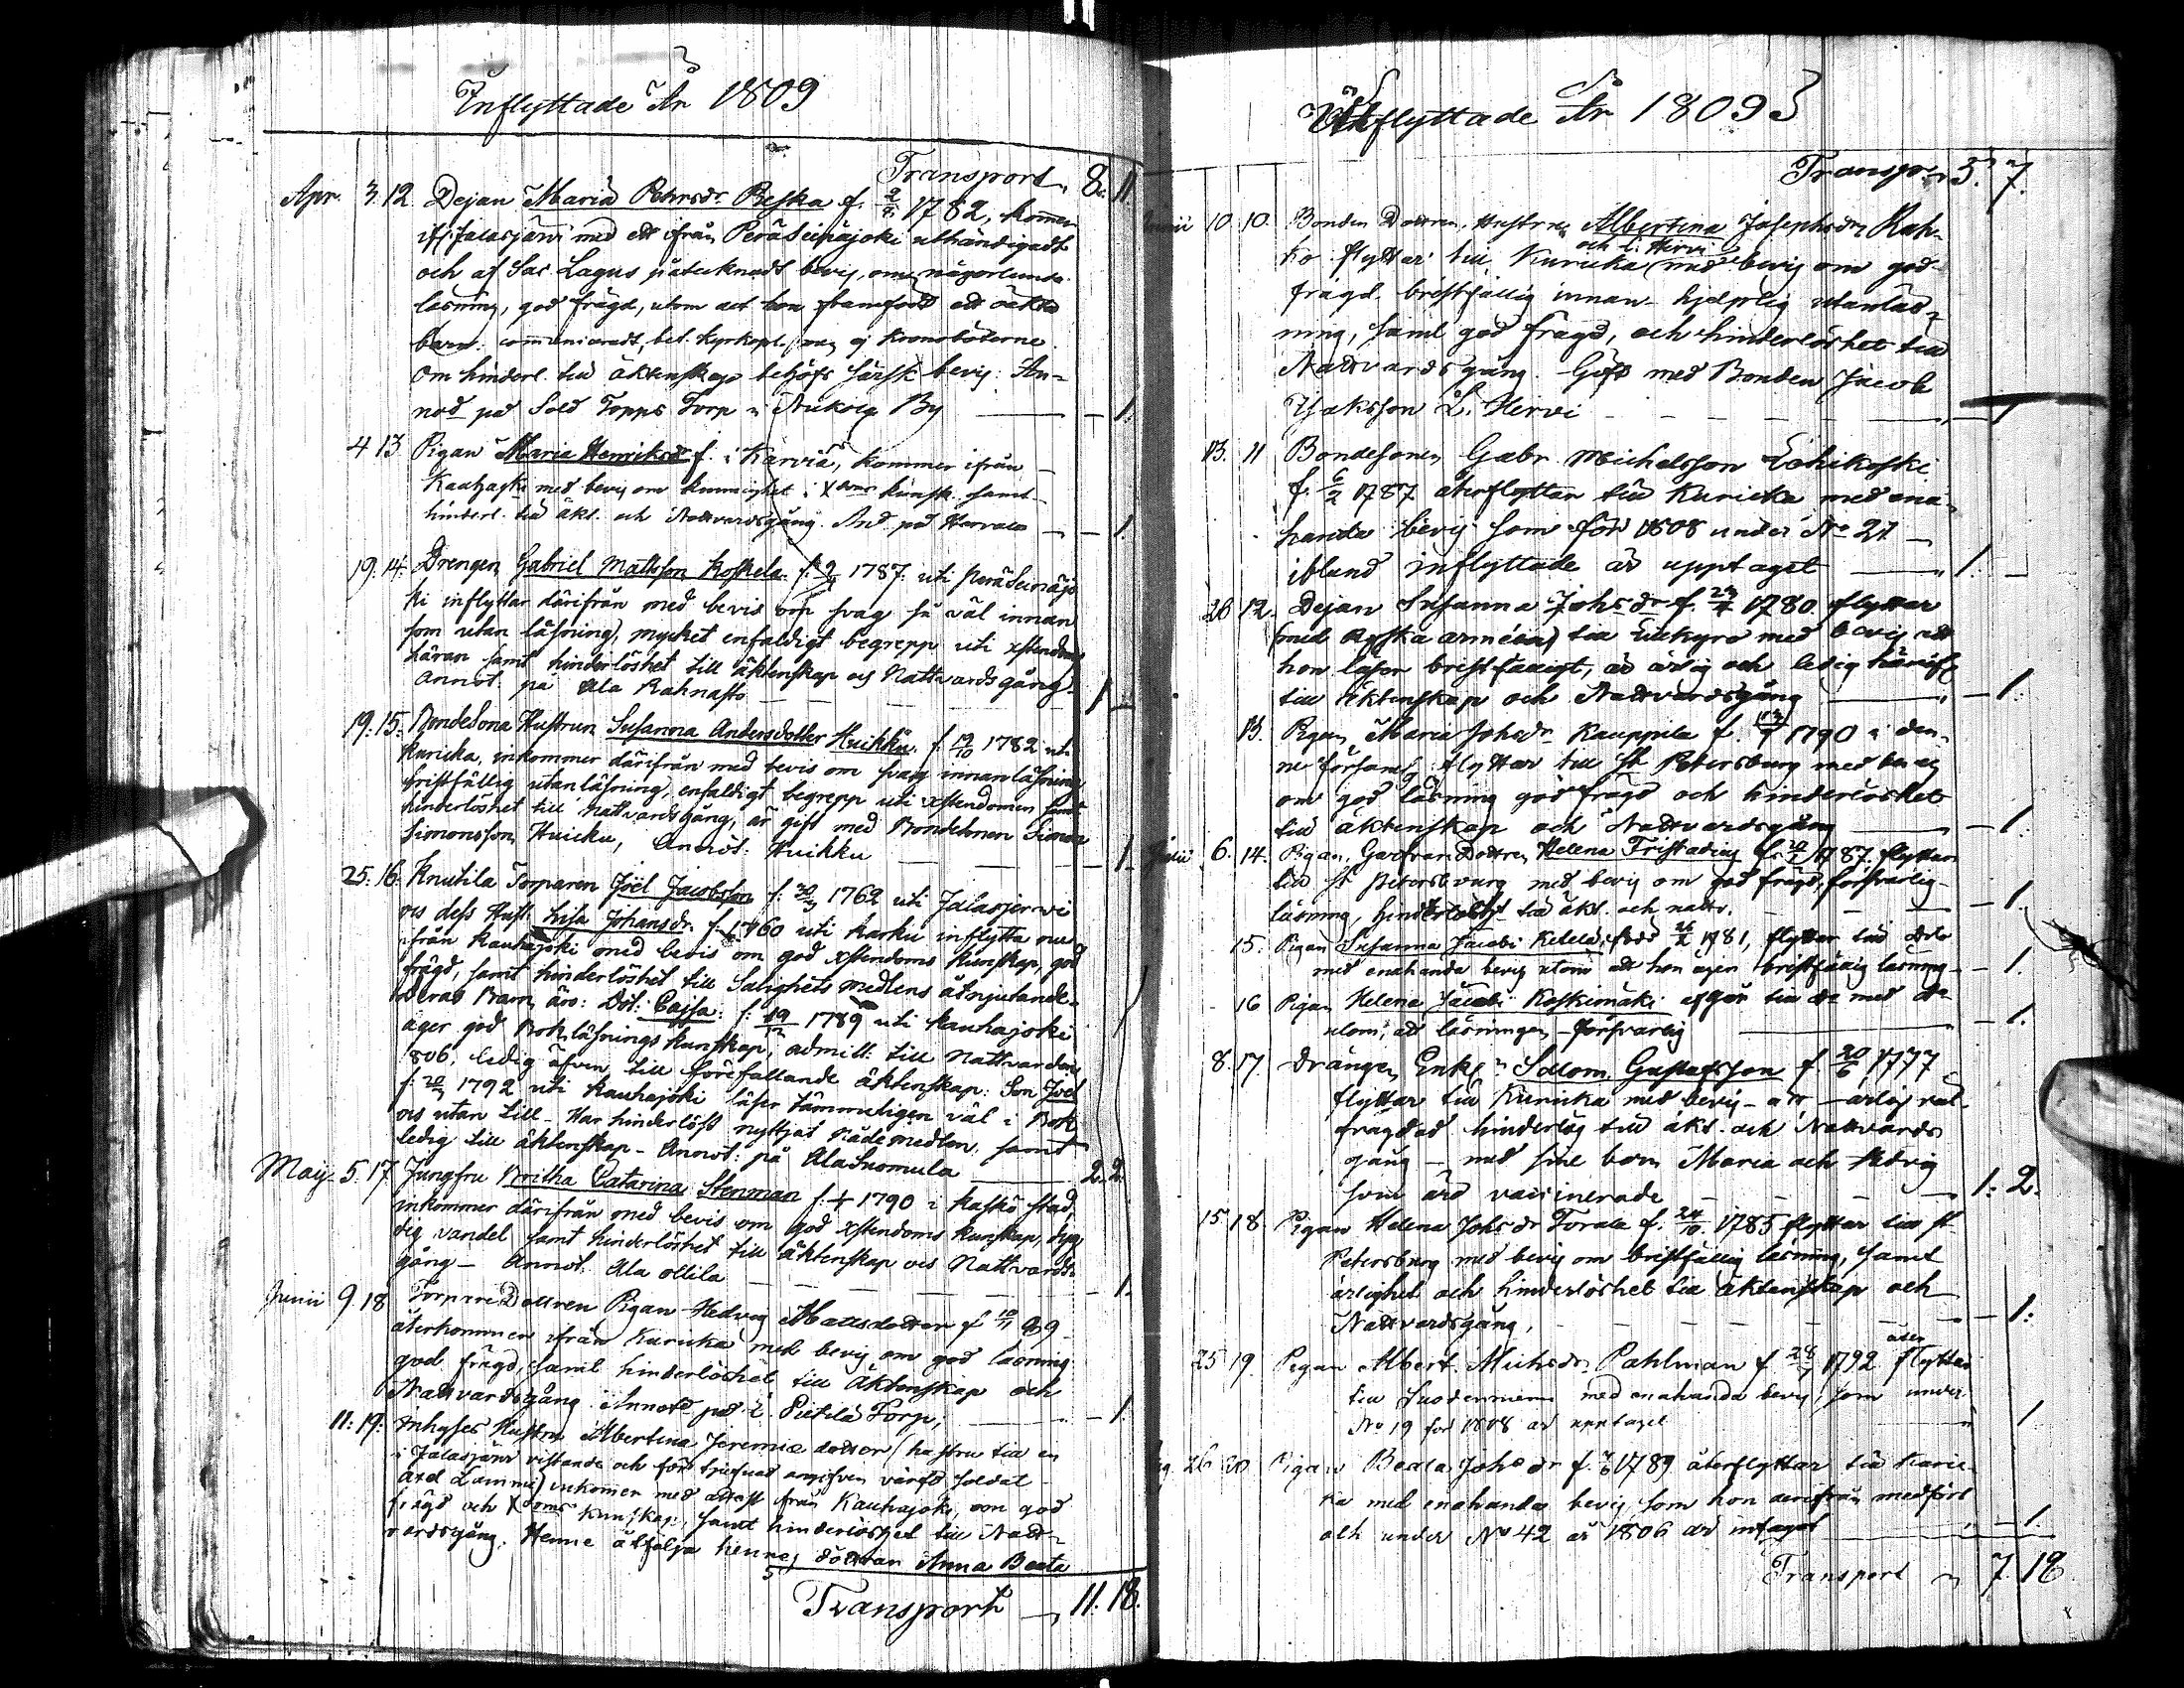 Inflyttade År 1809
Transport 8. 11.
Apr. 3. 12. Dejan Maria Petersdr Reska f. 1782, kommer
if. Jalasjärvi med ett ifrån Peräseinäjoki uthändigadt
och af Sac. Lagus påtecknadt bevis, om någorlunda
läsning, god frägd, utom att hon framfödt ett oäkta
barn. communiceradt, bet. kyrkopl. men ej Kronoböterne.
Om hinderl. till äktenskap behöfs särsk. bevis: An-
nod på Sold Topps Torp i By — — 1.
4 13 Pigan Maria Henriksdr f. i Karvia, kommer ifrån
med bevis om kunnighet i Xdoms kunsk. samt
hinderl. till äkt. och Nattvardsgång. And. på — — 1.
19. 14. Drengen Gabriel Mattsson Koskela f. 1787 uti Peräseinäjo
ki inflyttar därifrån med bevis om svag så väl innan
som utan läsning, mycket enfaldigt begrepp uti xstendoms
Läran samt hinderlöshet till äktenskap och Nattvardsgång.
Annot. på Ala Rahnasto — 1 —
19. 15. Bondesona Hustrun Susanna Andersdotter Huikku f. 1782 uti
Kuricka, inkommer därifrån med bevis om svag innanläsning
bristfällig utanläsning, enfaldigt begrepp uti xstendomen samt
hinderlöshet till Nattvardsgång, är gift med Bondesonen Simon
Simonsson Huicku, Annot: Huikku — 1.
25. 16. Knutila Torparen Joël Jacobsson f. 30/3 1762 uti Jalasjerwi
och dess Hust. Lisa Johansdr. f. 1760 uti Karku inflytta nu
ifrån Kauhajoki med bevis om god xstendoms kunskap, god
frägd, samt hinderlöshet till Salighets medlens åtnjutande.
Deras Barn äro: Dot: Cajsa: f. 19/12 1789 uti Kauhajoki
äger god Bokläsnings kunskap, admitt: till Nattvarden
806, ledig äfven till förefallande äktenskap: Son Joël
f. 1792 uti Kauhajoki läser tämmeligen väl i Bok
och utan till – Har hinderlöst nyttjat Nådemedlen, samt
ledig till äktenskap – Annot: på Ala Luomula — 2. 2.
May. 5. 17 Jungfru Britha Catarina Stenman f. 1790 i Kaskö stad,
inkommer därifrån med bevis om god xstendoms kunskap, dyg-
dig vandel samt hinderlöshet till äktenskap och Nattvards-
gång – Annot. Ala Ollila — — 1.
Junii 9. 18 Torpare Dottren Pigan Hedvig Mattsdotter f.
återkommer ifrån Kuricka med bevis om god läsning
god frägd, samt hinderlöshet till Äktenskap och
Nattvardsgång. Annotd på Torp, — — 1.
11: 19: Inhyses Hustru Albertina Jeremiædotter (hustru till en
i Jalasjärvi vistande och angifven värfd soldat
Axel Lammi) inkommer med attest från Kauhajoki, om god
frägd och Xdoms kunskap, samt hinderlöshet till Natt-
vardsgång. Henne åtfölja hennes dottran Anna Beata
Transport — 11. 18.
Utflyttade År 1809
Transp. 5. 7.
Junii 10. 10. Bonden Dottren, Hustrun Albertina Josephsdr Rah-
och L. Hirvi
ko flyttar till Kuricka (med bevis om god
frägd, bristfällig innan- hjelplig utanläs-
ning, samt god frägd, och hinderlöshet till
Nattvardsgång. Gift med Bonden Jacob
Isaksson L. Hervi — — 1
13. 11 Bondesonen Gabr. Michelsson Lohikoski
f. 6/2 1787 återflyttar till Kuricka med ena-
handa bevis som för 1808 under No 21
ibland inflyttade är upptaget — 1. —
26 12. Dejan Susanna Johsdr f. 1780 flyttar
(med Ryska arméen) till Lillkyro med bevis att
hon läser bristfälligt, är ärlig och ledig
till äktenskap och Nattvardsgång — — 1.
13. Pigan Maria Johsdr Kauppila f. 1790 i den-
ne församl. flyttar till St Petersburg med bevis
om god läsning god frägd och hinderlöshet
till äktenskap och Nattvardsgång — — 1.
6. 14. Pigan, Dottren Helena Fristadius f. 1787. flyttar
till St Petersburg med bevis om god frägd, försvarlig
läsning, hinderlöshet till äkt. och nattv. — — 1.
15. Pigan Susanna Jacobs Ketelä, född 1781, flyttar till dito
med enahanda bevis utom att hon äger bristfällig läsning — — 1.
16 Pigan Helena Jacobs Koskimäki afgår till do med do
utom, att läsningen försvarlig — — 1.
8. 17 Drängen Enkl. Salom. Gustafsson f. 20/6 1777
flyttar till Kuricka med bevis – att – ärlig väl
frägdad hinderlös till äkt. och Nattvards
gång – med sine barn Maria och Hedvig
som äro vaccinerade — 1: 2.
15 18 Pigan Helena Johsdr Torala f. 24/10 1785 flyttar till St
Petersburg med bevis om bristfällig läsning, samt
ärlighet och hinderlöshet till äktenskap och
Nattvardsgång, — — 1:
25 19. Pigan Albert. Michsdr Pahlman f. 28/7 1792 åter flyttar
till med enahanda bevis, som under
No 19 för 1808 är upptaget — 1
26 20 Pigan Beata Johsdr f. 1789 återflyttar till Kuric-
ka med enahanda bevis, som hon derifrån medfört
och under No 42 år 1806 är intaget — — 1.
Transport 7 18